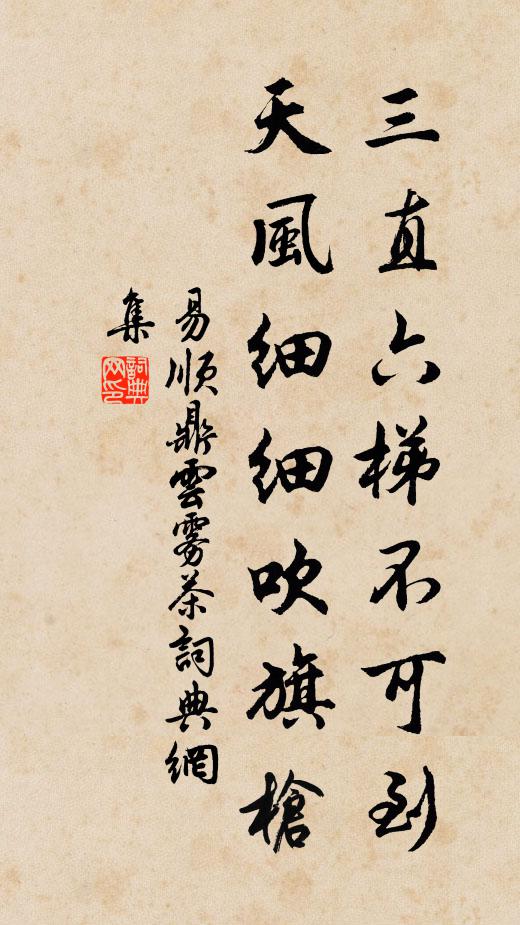 三直六梯不可到
天風細細吹旗槍
易順鼎雲霧茶詞典網
集
詞典
网印